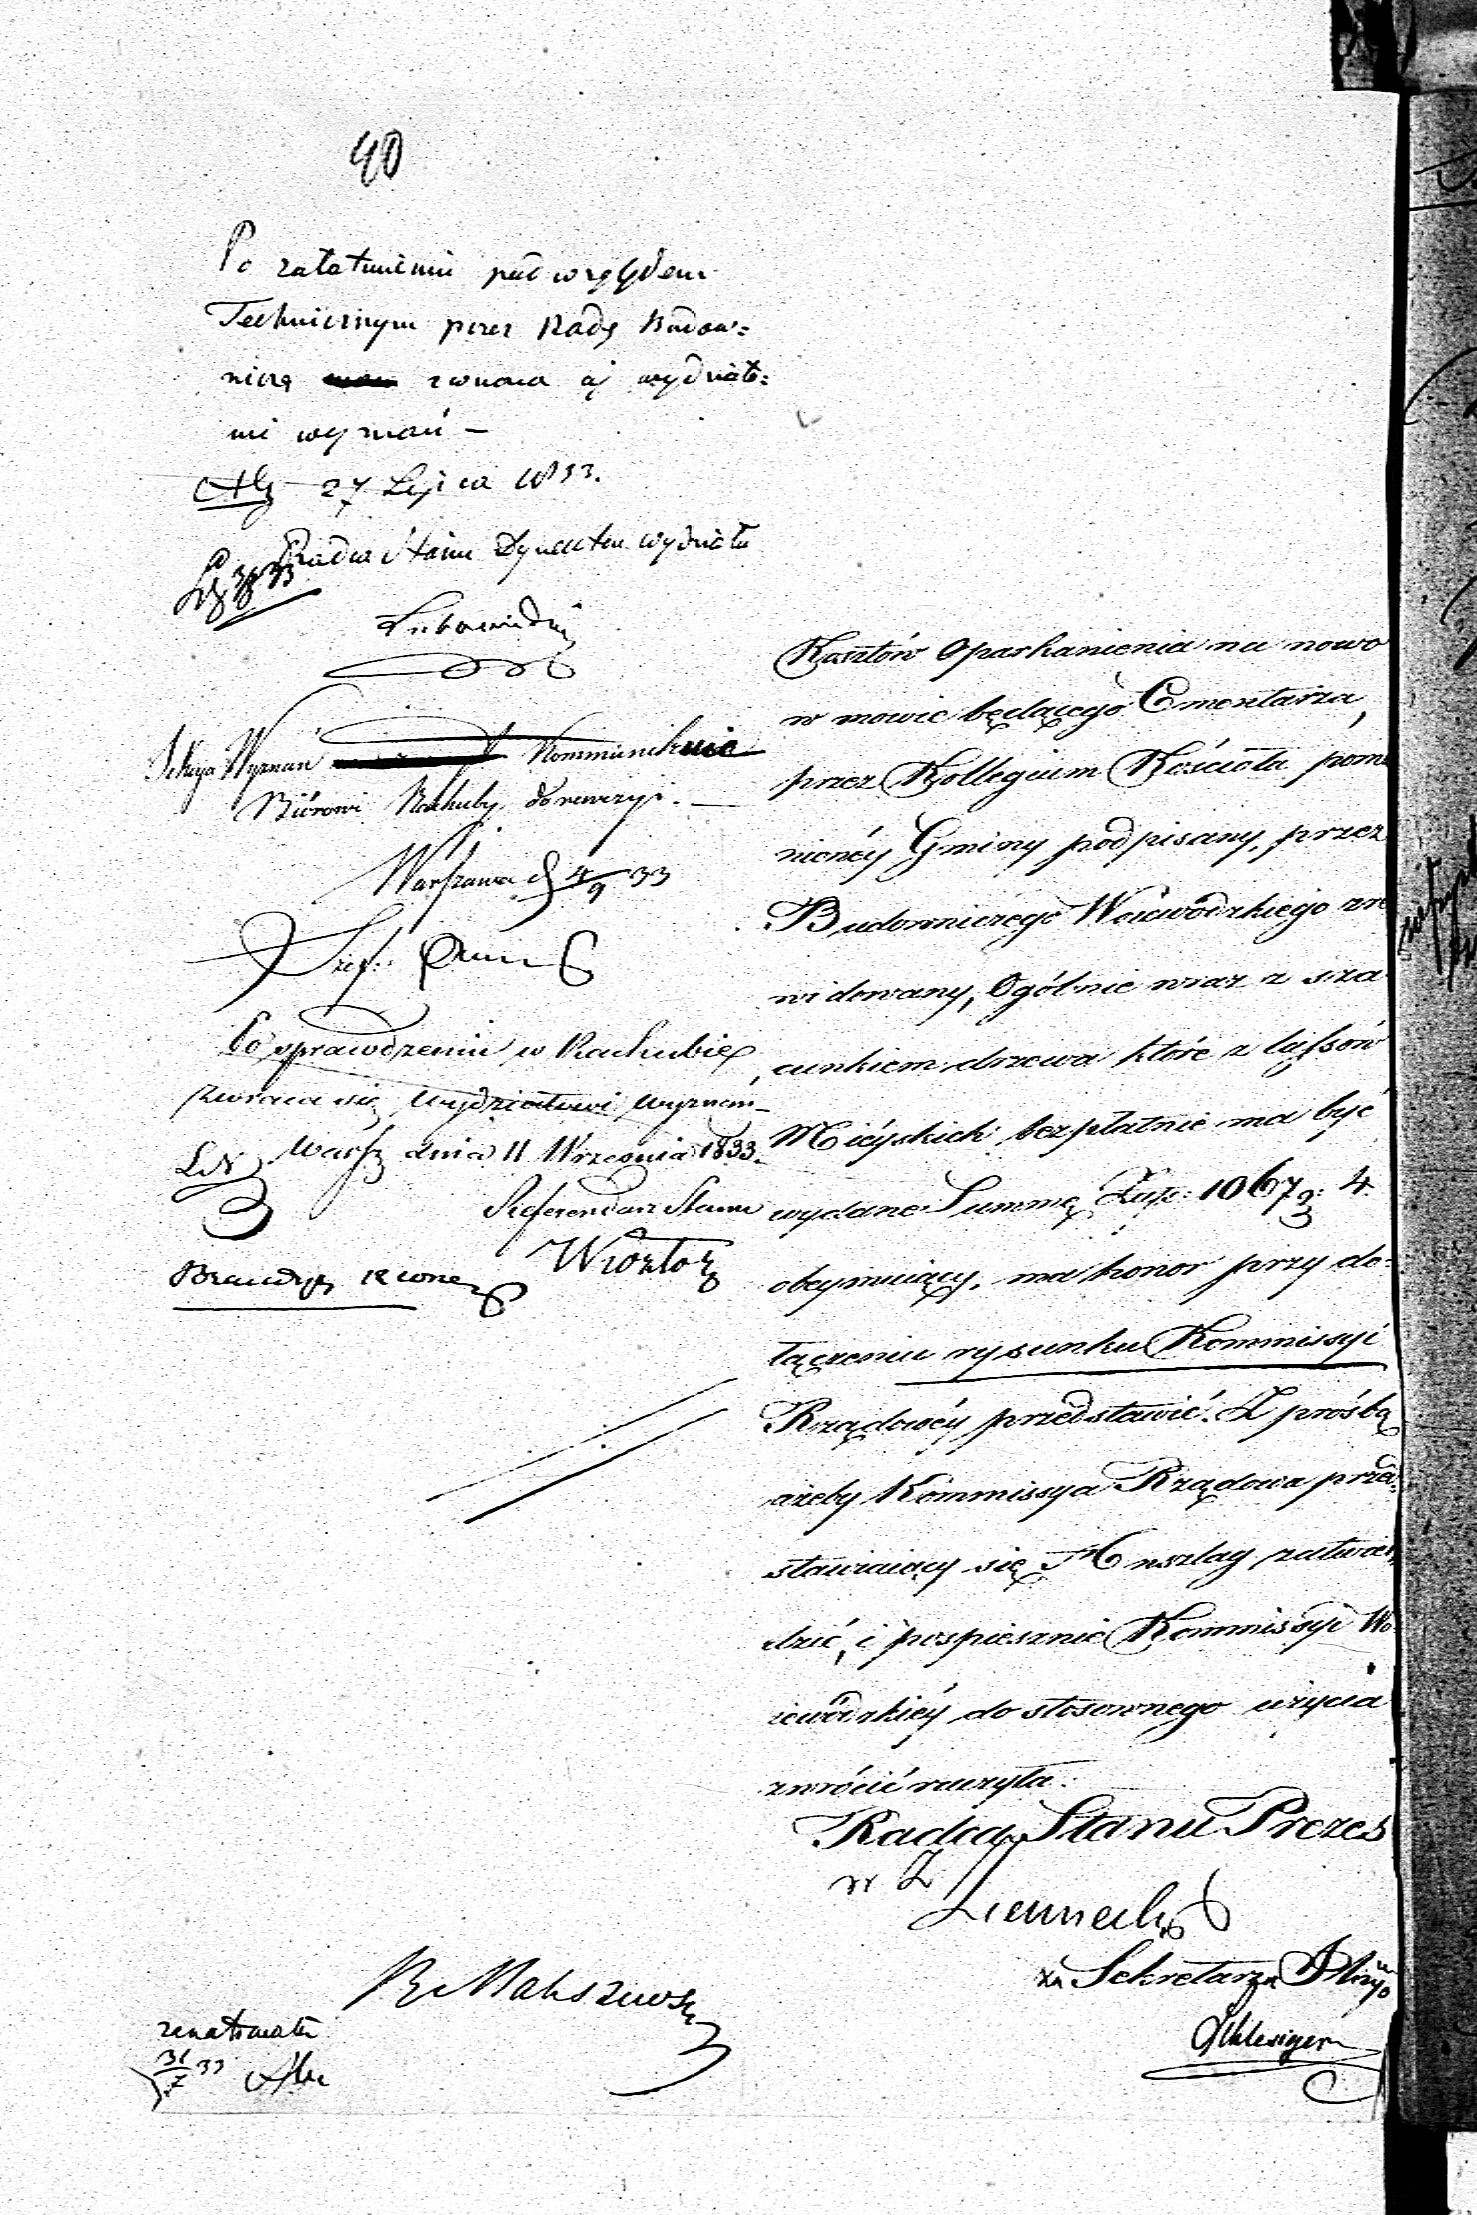 40
Po załatwieniu pod względem
Technicznym przez Radę Budow=
niczą zwraca się wydziało=
wi wyznań —
27 Lipca 1833.
Radca Stanu Dyrektor Wydziału
Sekcya Wyznań Kommunikuie
Biórowi Rachuby do rewizyi. —
Warszawa d 4/9 33
Szef:
Po sprawdzeniu w Rachubie,
zwraca się Wydziałowi Wyznań
Warsz dnia 11 Września 1833.
Referendarz Stanu
Kosztów Oparkanienia na nowo
w mowie będącego Cmentarza,
przez Kollegium Kościoła pomie
nionéy Gminy podpisany, przez
Budowniczego Woiewódzkiego zre
widowany, Ogólnie wraz z sza
cunkiem drzewa które z lassów
Mieyskich bezpłatnie ma być
wydane Summę Złp: 1067 g: 4.
obeymuiący, ma honor przy do=
łączeniu rysunku Kommissyi
Rządowéy przedstawić. Z prośbą
ażeby Kommissya Rządowa przed=
stawiaiący się Anszlag zatwier
dzić, i pospiesznie Kommissyi Wo
iewódzkiéy do stosownego użycia
zwrócić raczyła.
Radca Stanu Prezes
w Z
za Sekretarza
31/7 33